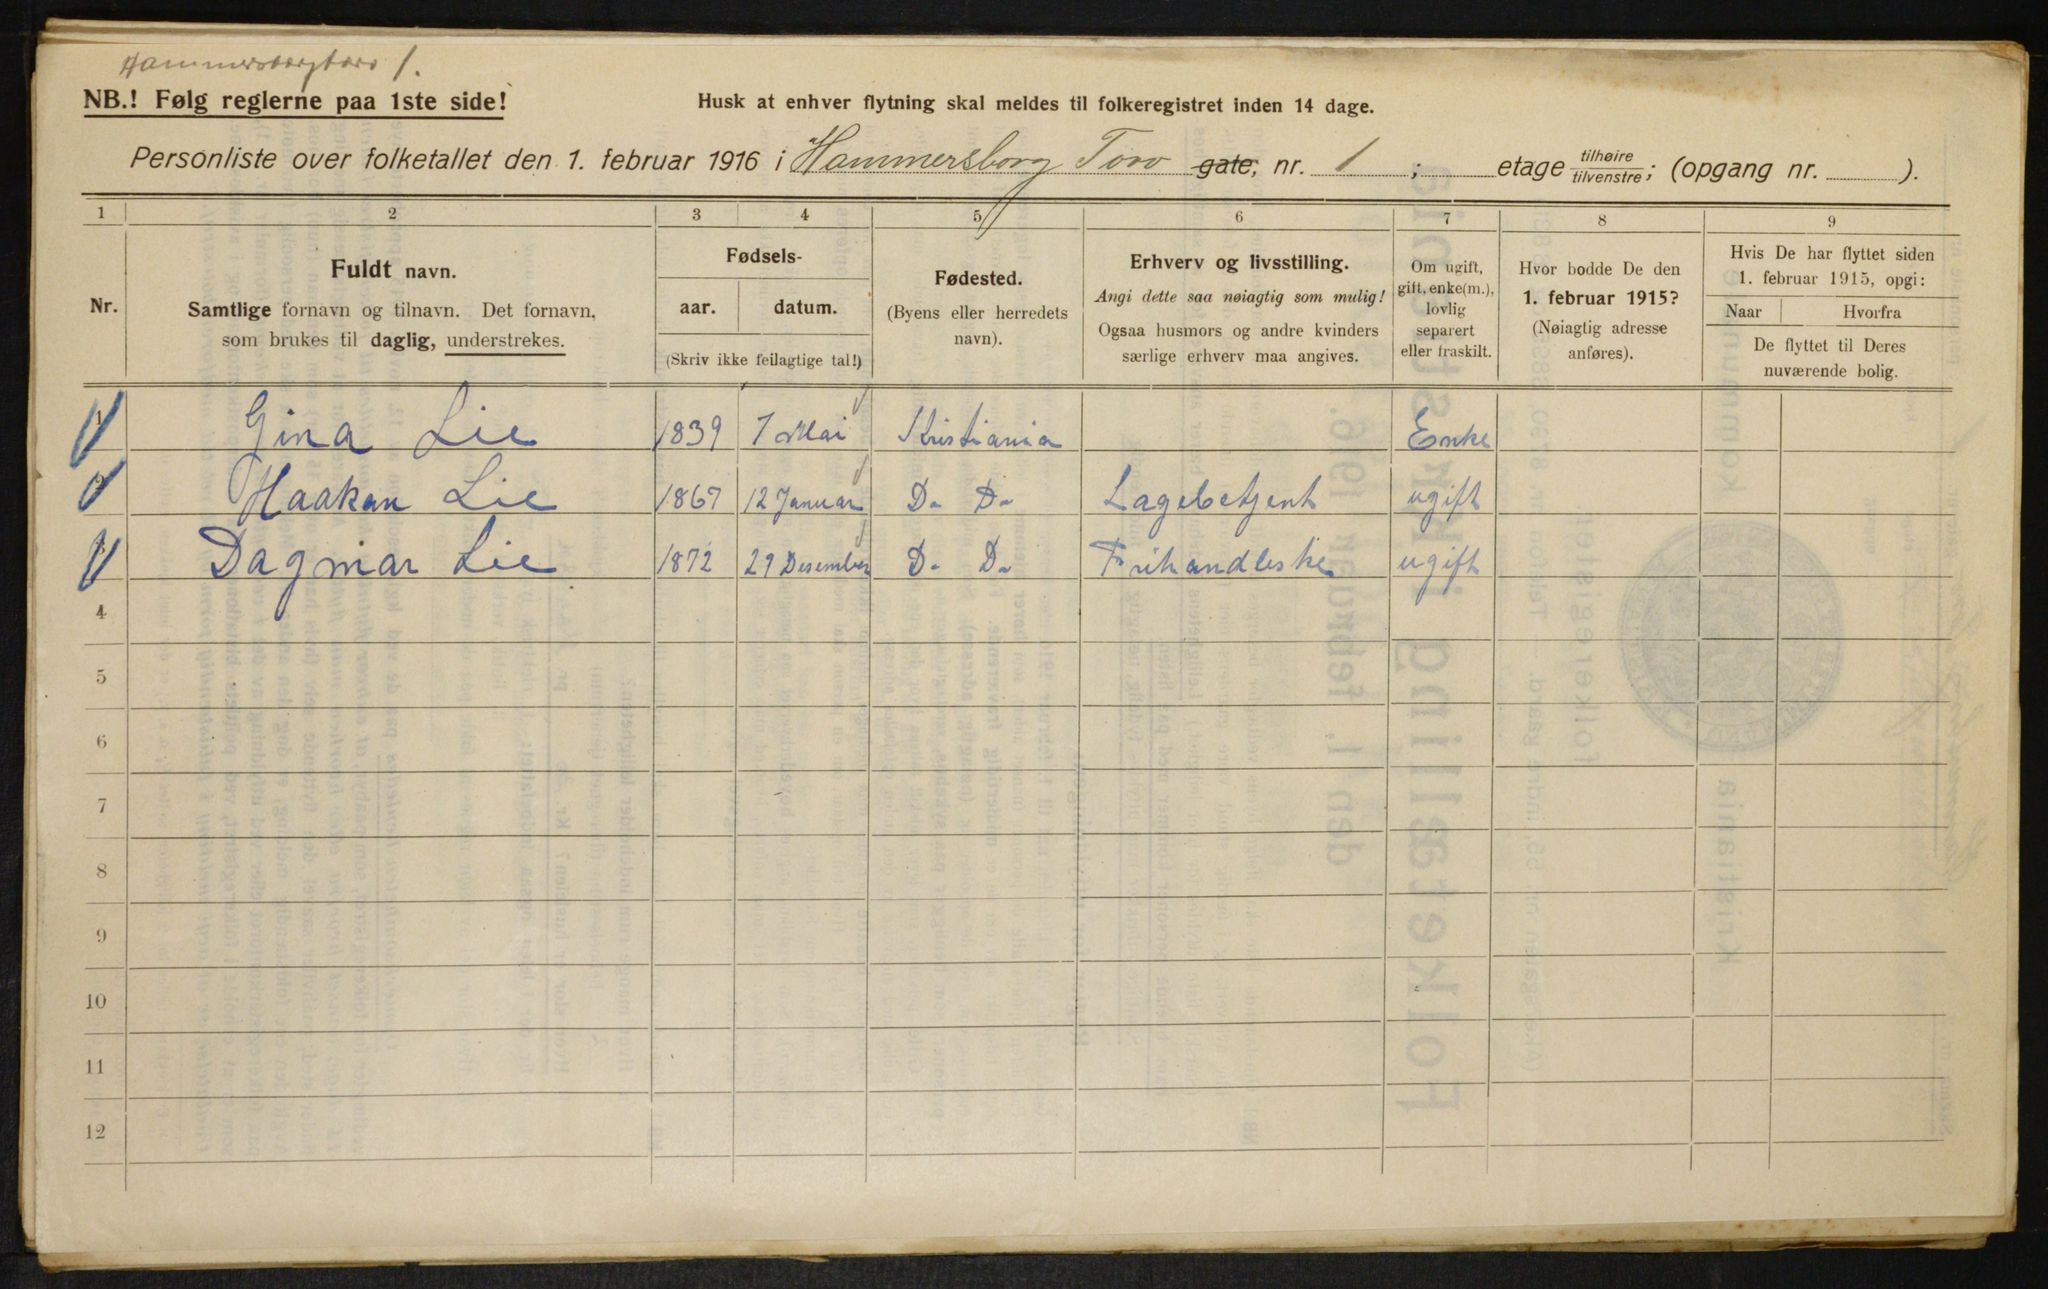 Hammersborgtorv 1.
NB.! Følg reglerne paa 1ste side!
Husk at enhver flytning skal meldes til folkeregistret inden 14 dage.
Personliste over folketallet den 1. februar 1916 i Hammersborg Torv gate, nr. 1 ; etage tilhøire tilvenstre; (opgang nr. ).
1 2 3 4 5 6 7 8 9
Nr.
Fuldt navn.
Samtlige fornavn og tilnavn. Det fornavn,
som brukes til daglig, understrekes.
Fødsels-
aar. datum.
(Skriv ikke feilagtige tal!)
Fødested.
(Byens eller herredets
navn).
Erhverv og livsstilling.
Angi dette saa nøiagtig som mulig!
Ogsaa husmors og andre kvinders
særlige erhverv maa angives.
Om ugift,
gift, enke(m.),
lovlig
separert
eller fraskilt.
Hvor bodde De den
1. februar 1915?
(Nøiagtig adresse
anføres).
Hvis De har flyttet siden
1. februar 1915, opgi:
Naar Hvorfra
De flyttet til Deres
nuværende bolig.
1 Gina Lie 1839 7 Mai Kristiania Enke
2 Haakan Lie 1867 12 Januar D. D. Lagebetjent ugift
3 Dagmar Lie 1872 29 Desember D. D. Frihandleske ugift
4
5
6
7
8
9
10
11
12